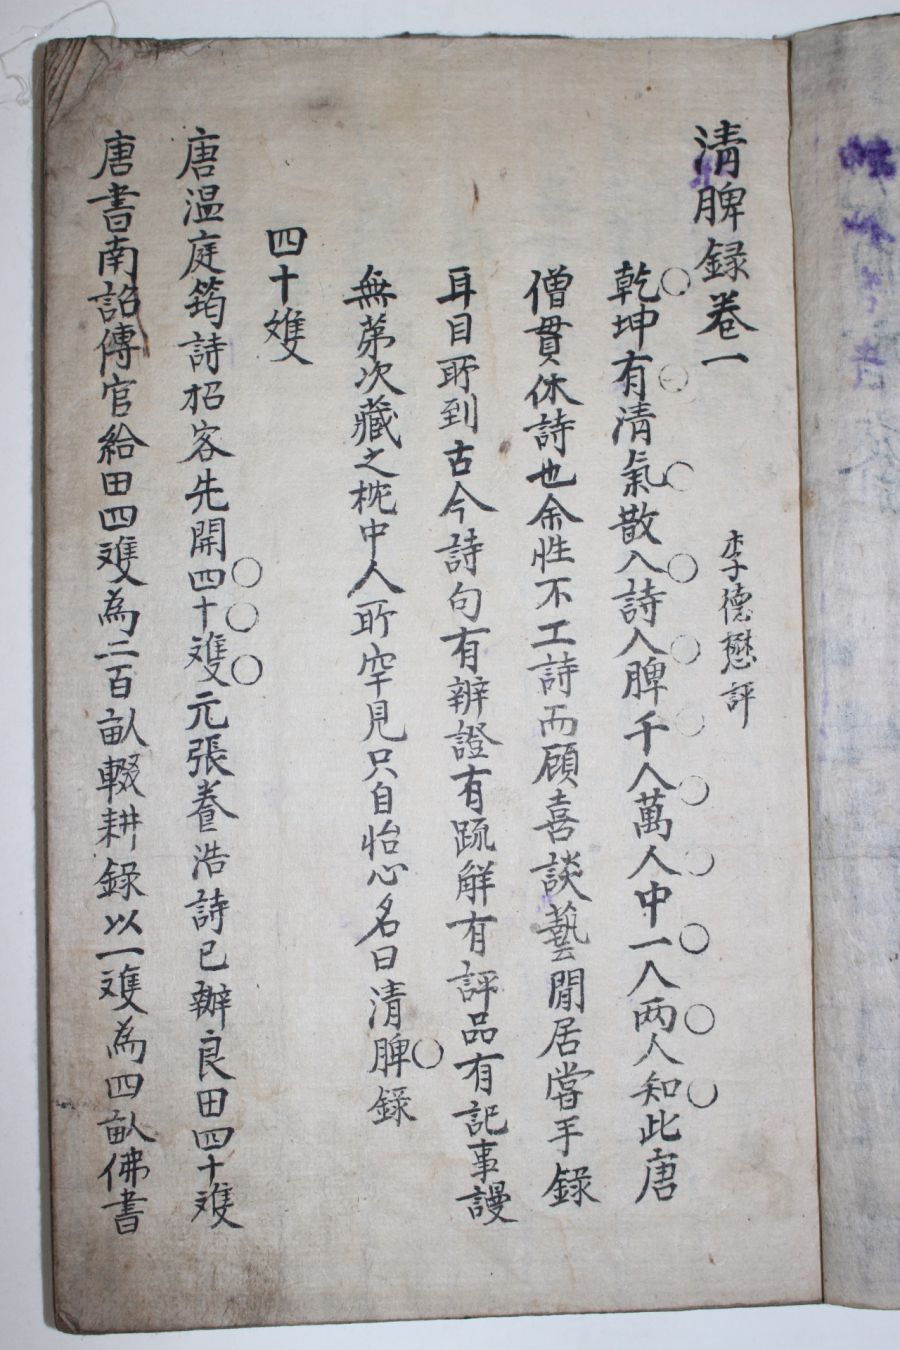 清脾録卷一
李德懋評
乾坤有清氣散入詩人脾千人萬人中一人兩人知此唐
僧貫休詩也余性不工詩而顧喜談藝閒居嘗手錄
耳目所到古今詩句有辨證有疏解有評品有記事謾
無苐次藏之枕中人所罕見只自怡心名曰清脾錄
四十䨇
唐温庭筠詩招客先開四十䨇元張養浩詩已辦良田四十䨇
唐書南詔傳官給田四䨇為二百畝輟耕錄以一䨇為四畝佛書